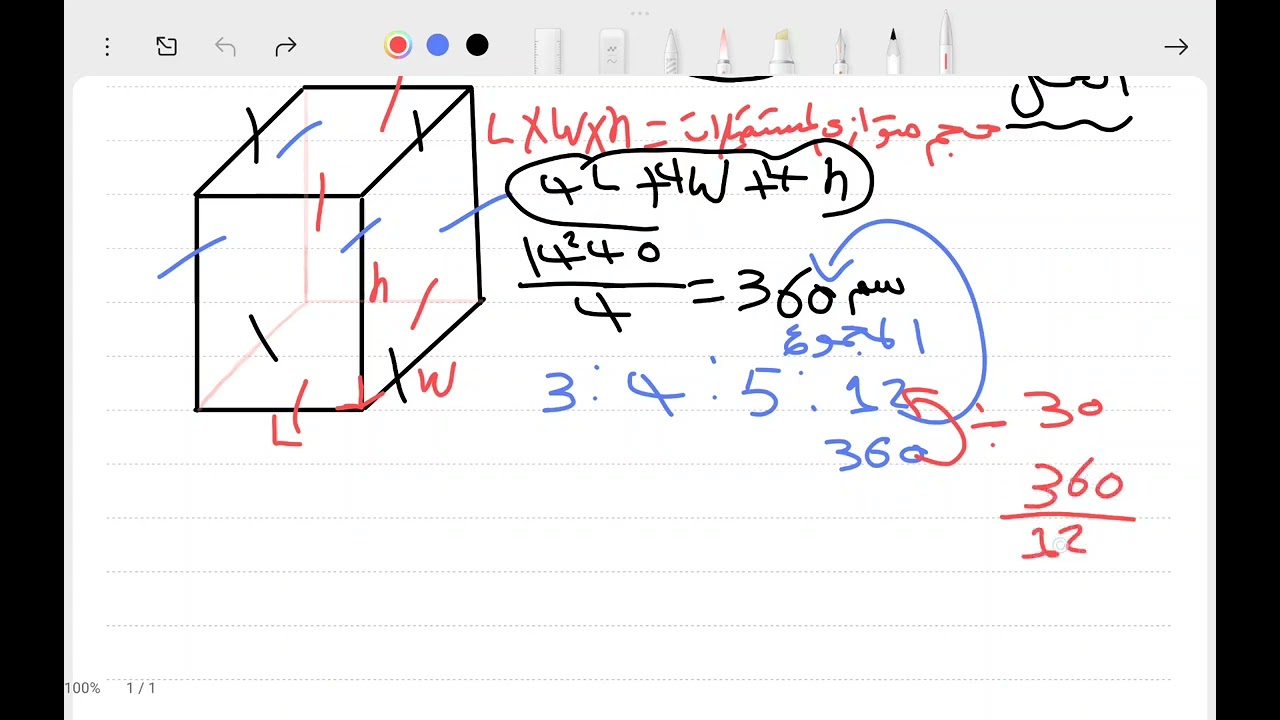 الحل
حجم متوازي المستطيلات = L X W X h
4L + 4W + 4h
1440 / 4 = 360 سم
المجموع
3 : 4 : 5 : 12
÷ 30
360
360 / 12
h
W
L
100% 1 / 1